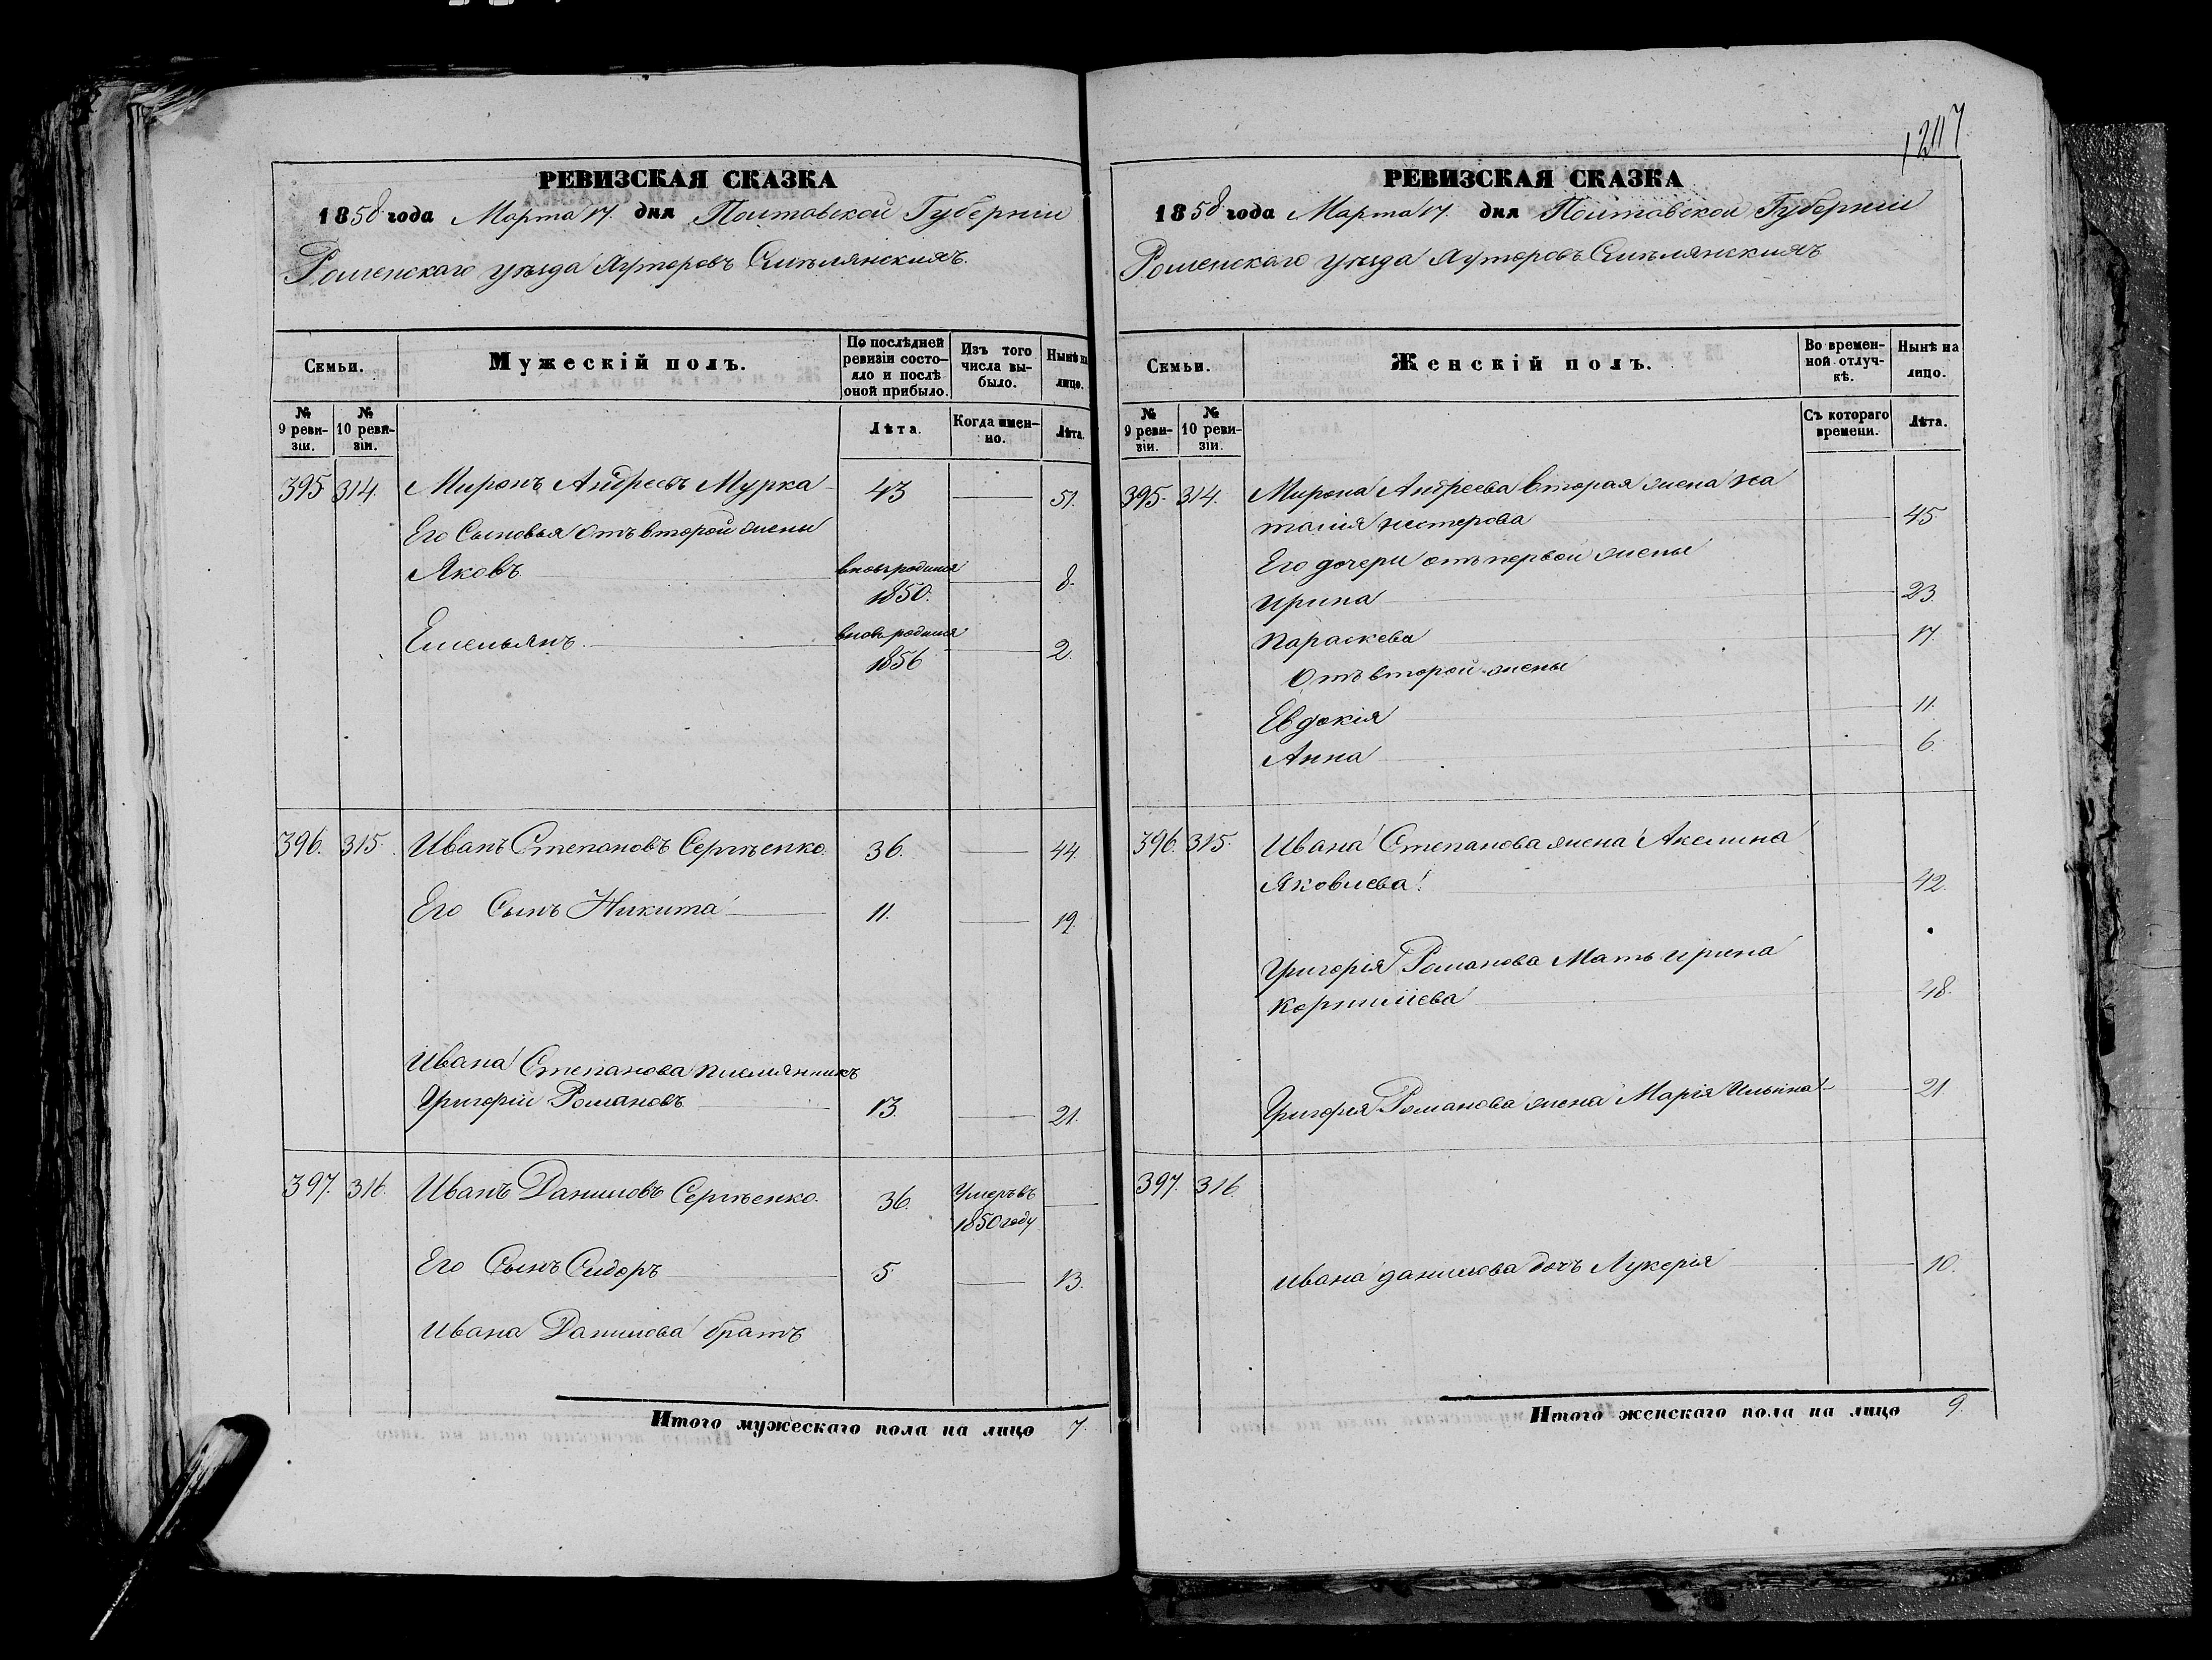 РЕВИЗСКАЯ СКАЗКА
1858 года Марта 17. дня Полтавской Губерніи
Роменскаго уѣзда Хуторовъ Смѣлянскихъ.
Семьи.
Мужескій полъ.
По послѣдней ревизіи состояло и послѣ оной прибыло.
Изъ того числа выбыло.
Нынѣ на лицо.
№ 9 ревизіи.
№ 10 ревизіи.
Лѣта.
Когда именно.
Лѣта.
395 314. Миронъ Андреевъ Мурка 43 51.
Его Сыновья отъ второй жены
Яковъ вновь родился 1850. 8.
Емельянъ вновь родился 1856 2.
396. 315. Иванъ Степановъ Сергѣенко. 36. 44.
Его Сынъ Никита 11. 19.
Ивана Степанова племянникъ
Григорій Романовъ 13 21.
397. 316. Иванъ Даниловъ Сергѣенко. 36. Умеръ въ 1850 году
Его Сынъ Сидоръ 5 13.
Ивана Данилова братъ
Итого мужескаго пола на лицо 7.
РЕВИЗСКАЯ СКАЗКА
1858 года Марта 17. дня Полтавской Губерніи
Роменскаго уѣзда Хуторовъ Смѣлянскихъ
Семьи.
Женскій полъ.
Во временной отлучкѣ.
Нынѣ на лицо.
№ 9 ревизіи.
№ 10 ревизіи.
Съ котораго времени.
Лѣта.
395. 314. Мирона Андреева вторая жена На
талія Нестерова 45
Его дочери отъ первой жены
Ирина 23.
Параскева 17.
Отъ второй жены
Евдокія 11.
Анна 6.
396. 315. Ивана Степанова жена Акелина
Яковлева 42.
Григорія Романова Мать Ирина
Корнилiева 48.
Григорія Романова жена Марія Ильина 21
397. 316.
Ивана Данилова дочь Лукерія 10.
Итого женскаго пола на лицо 9.